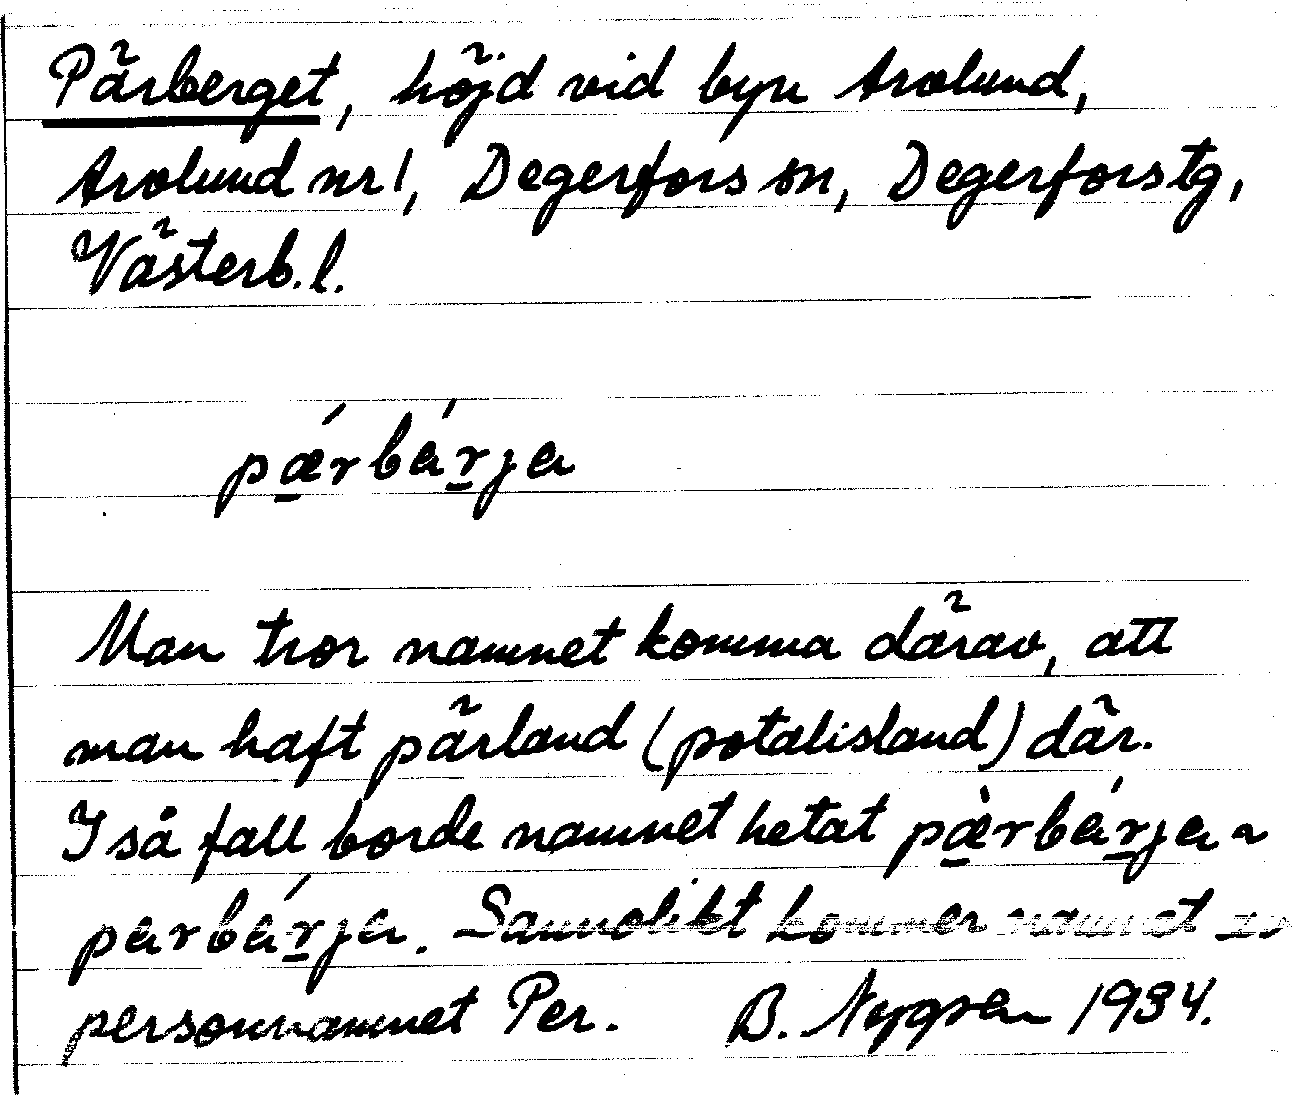 Pärberget, höjd vid byn Avalund,
Avalund nr 1, Degerfors sn, Degerfors tg,
Västerb. l.
pǽ̱rbáṟja
Man tror namnet komma därav, att
man haft pärland (potatisland) där.
I så fall borde namnet hetat pæ̱̀rbáṟja ~
parbáṟja. Sannolikt kommer namnet av
personnamnet Per. B. 1934.